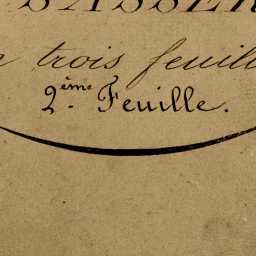 trois feuill
2ème Feuille.